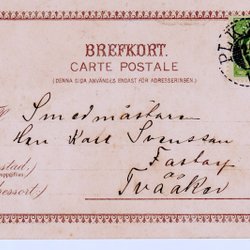 BREFKORT.
CARTE POSTALE
(DENNA SIDA ANVÄNDES ENDAST FÖR ADRESSERINGEN.)
Smedmästaren
Herr Karl Svensson
Fastarp
Tvååker